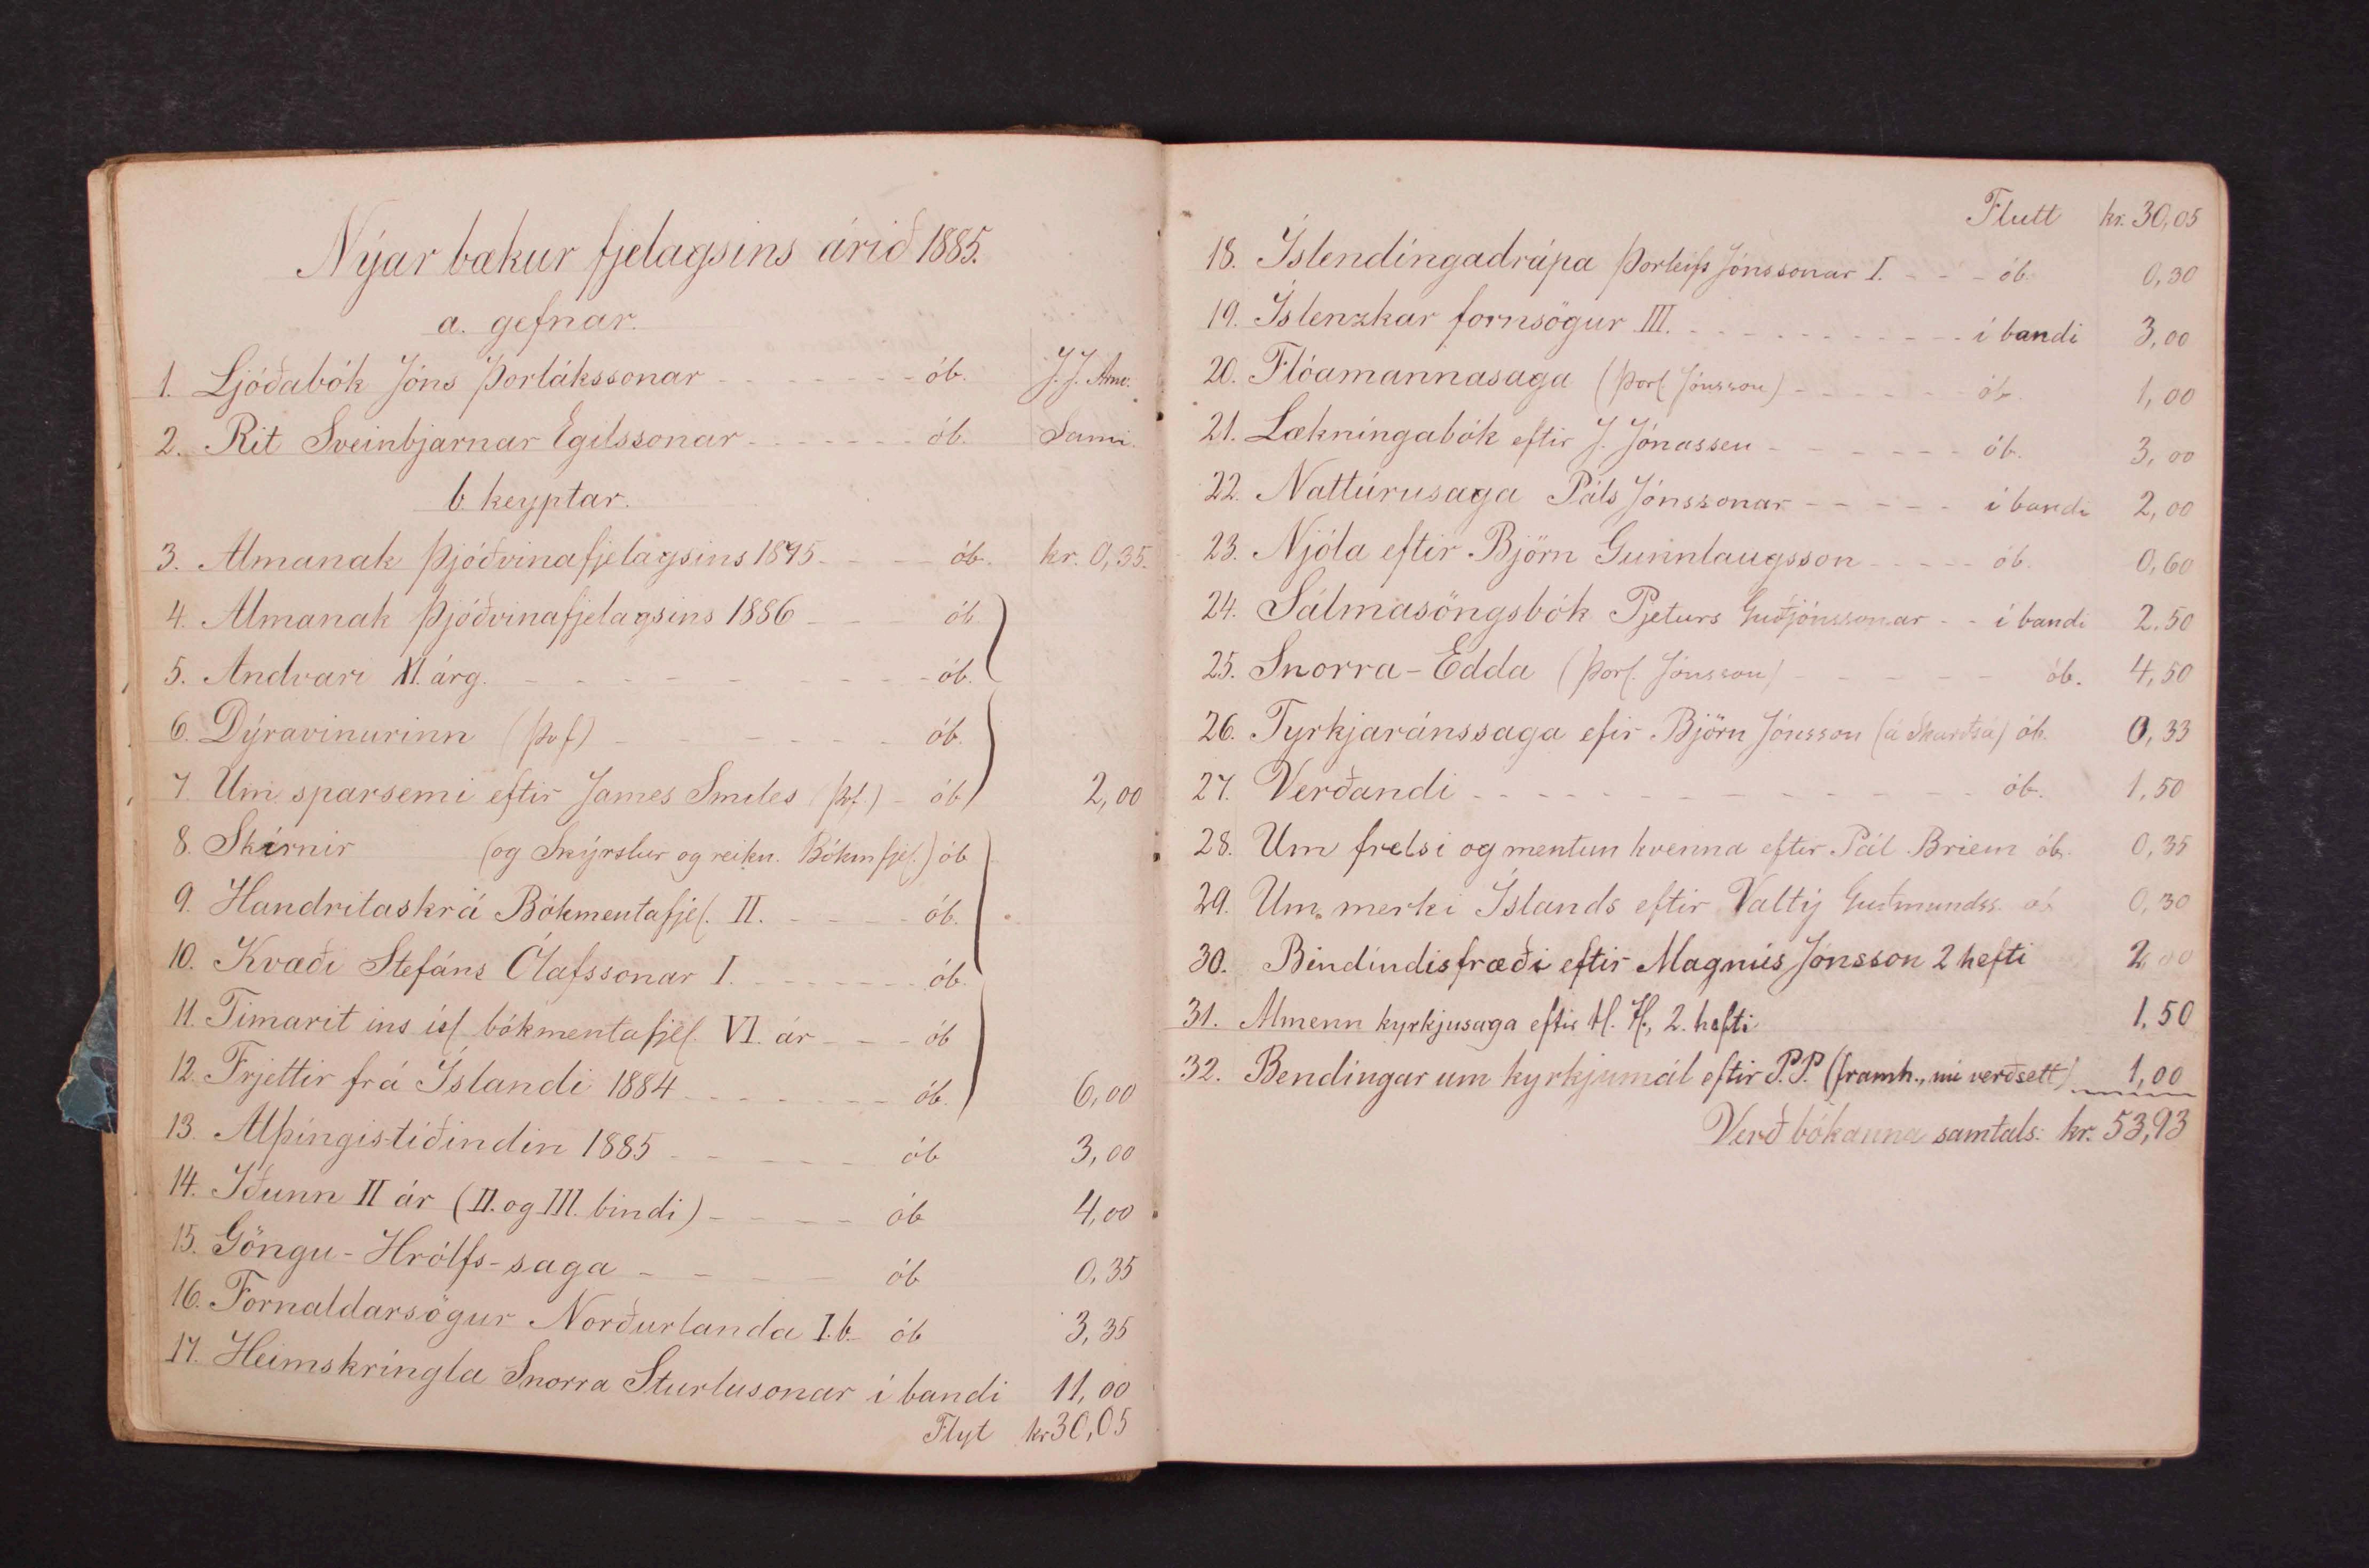 Nýar bækur fjelagsins árið 1885.
a. gefnar.
1. Ljóðabók Jóns Þorlákssonar - - - - - - - ób. J. J. Arne.
2. Rit Sveinbjarnar Egilssonar - - - - - - - ób. Sami.
b. keyptar.
3. Almanak Þjóðvinafjelagsins 1875 - - - - ób. kr. 0,35.
4. Almanak Þjóðvinafjelagsins 1886 - - - ób.
5. Andvari XI. árg. - - - - - - - - - - ób.
6. Dýravinurinn (Þvf) - - - - - - - ób.
7. Um sparsemi eftir James Smiles (Þvf.) - ób. 2,00
8. Skírnir (og Skýrslur og reikn. Bókmfjel.) ób
9. Handritaskrá Bókmentafjel. II. - - - - - ób.
10. Kvæði Stefáns Ólafssonar I. - - - - - - - ób.
11. Timarit ins ísl. bókmentafjel. VI. ár - - - - ób
12. Frjettir frá Íslandi 1884 - - - - - - - ób. 6,00
13. Alþingistíðindin 1885 - - - - - ób 3,00
14. Iðunn II ár (II. og III. bindi) - - - - - ób 4,00
15. Göngu-Hrólfs-saga - - - - - ób 0,35
16. Fornaldarsögur Norðurlanda I. b. ób 3,35
17. Heimskríngla Snorra Sturlusonar í bandi 11,00
Flyt kr 30,05
Flutt kr. 30,05
18. Íslendíngadrápa Þorleifs Jónssonar I. - - - ób. 0,30
19. Íslenzkar fornsögur III. - - - - - - - - - - í bandi 3,00
20. Flóamannasaga (Þorl. Jónsson) - - - - - - ób. 1,00
21. Lækníngabók eftir J. Jónassen - - - - - - ób. 3,00
22. Nattúrusaga Páls Jónssonar - - - - - í bandi 2,00
23. Njóla eftir Björn Gunnlaugsson - - - - - ób. 0,60
24. Sálmasöngsbók Pjeturs Guðjónssonar - - í bandi 2.50
25. Snorra-Edda (Þorl. Jónsson) - - - - - ób. 4,50
26. Tyrkjaránssaga efir Björn Jónsson (á Skarðsá) ób. 0,33
27. Verðandi - - - - - - - - - - - - ób. 1,50
28. Um frelsi og mentun kvenna eftir Pál Briem ób. 0,35
29. Um merki Íslands eftir Valtý Guðmundss. ób 0,30
30. Bindindisfræði eftir Magnús Jónsson 2 hefti 2,00
31. Almenn kyrkjusaga eftir H. H., 2. hefti 1,50
32. Bendingar um kyrkjumál eftir P.P. (framh., nú verðsett) 1,00
Verð bókanna samtals: kr. 53,93